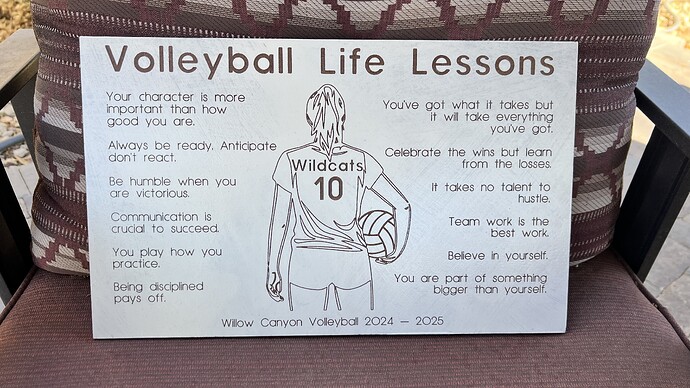 Volleyball Life Lessons
Your character is more
important than how
good you are.
Always be ready. Anticipate
don't react.
Be humble when you
are victorious.
Communication is
crucial to succeed.
You play how you
practice.
Being disciplined
pays off.
Wildcats
10
You've got what it takes but
it will take everything
you've got.
Celebrate the wins but learn
from the losses.
It takes no talent to
hustle.
Team work is the
best work.
Believe in yourself.
You are part of something
bigger than yourself.
Willow Canyon Volleyball 2024 – 2025